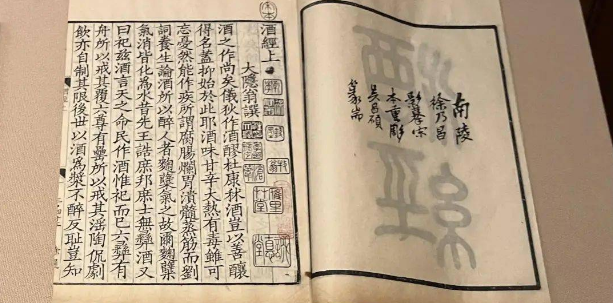 南陵
徐乃昌
影摹宋
本重彫
吳昌碩
篆耑
宋本
酒經上
大隱翁譔
酒之作尚矣儀狄作酒醪杜康秫酒豈以善釀
得名蓋抑始於此耶酒味甘辛大熱有毒雖可
忘憂然能作疾所謂腐腸爛胃潰髓蒸筋而劉
詞養生論酒所以醉人者麴糵氣之故爾麴糵
氣消皆化為水昔先王誥庶邦庶士無彝酒又
曰祀茲酒言天之命民作酒惟祀而已六彝有
舟所以戒其覆六尊有罍所以戒其淫陶侃劇
飲亦自制其限後世以酒為漿不醉反恥豈知